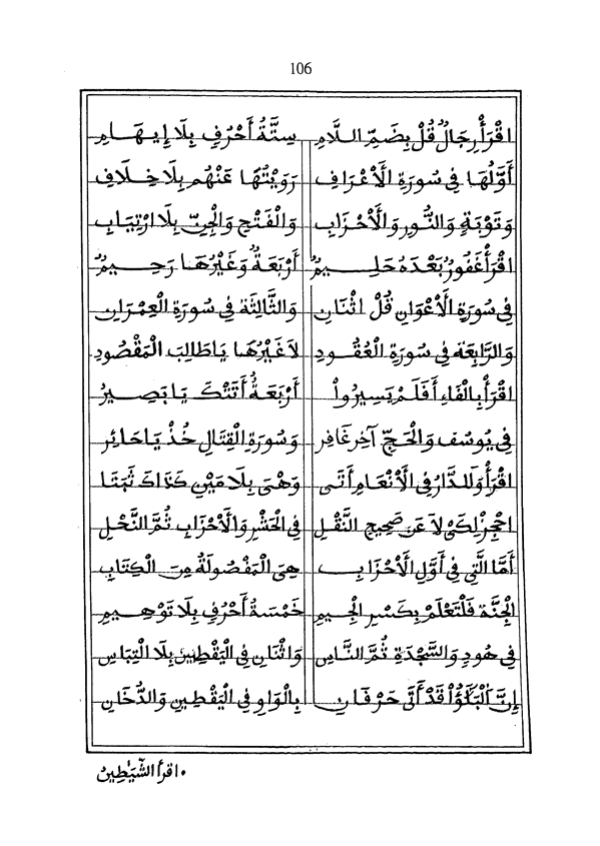 106
اقْرَأْ رِجَالٌ قُلْ بِضَمِّ اللَّامِ سِتَّةُ أَحْرُفٍ بِلَا إِيهَامِ
أَوَّلُهَا فِي سُورَةِ الْأَعْرَافِ رَوَيْتُهَا عَنْهُم بِلَا خِلَافِ
وَتَوْبَةٍ وَالنُّورِ وَالْأَحْزَابِ وَالْفَتْحِ وَالْجِنِّ بِلَا ارْتِيَابِ
اقْرَأْ غَفُورٌ بَعْدَهُ حَلِيمٌ أَرْبَعَةٌ وَغَيْرُهَا رَحِيمٌ
فِي سُورَةِ الْأَعْوَانِ قُلْ اثْنَانِ وَالثَّالِثَة فِي سُورَةِ الْعِمْرَانِ
وَالرَّابِعَة فِي سُورَةِ الْعُقُودِ لَا غَيْرُهَا يَا طَالِبَ الْمَقْصُودِ
اقْرَأْ بِالْفَاءِ أَفَلَمْ يَسِيرُواْ أَرْبَعَةٌ أَتَتْكَ يَا بَصِيرُ
فِي يُوسُف وَالْحَجِّ آخِر غَافِرِ وَسُورَةِ الْقِتَالِ خُذْ يَا حَائِرِ
اقْرَأْ وَلَلدَّارُ فِي الْأَنْعَامِ أَتَى وَهْيَ بِلَا مَيْنٍ كَذَاكَ ثَبَتَا
احْجِزْ لِكَيْ لَا عَن صَحِيحِ النَّقْلِ فِي الْحَشْرِ وَالْأَحْزَابِ ثُمَّ النَّحْلِ
أَمَّا الَّتِي فِي أَوَّلِ الْأَحْزَابِ هِيَ الْمَفْصُولَةُ مِنَ الْكِتَابِ
الْجِنَّة فَلْتَعْلَمْ بِكَسْرِ الْجِيمِ خَمْسَةُ أَحْرُفٍ بِلَا تَوْهِيمِ
فِي هُودٍ وَالسَّجْدَةِ ثُمَّ النَّاسِ وَاثْنَانِ فِي الْيَقْطِينِ بِلَا الْتِبَاسِ
إِنَّ الْبَلَٰٓؤُاْ قَدْ أَتَى حَرْفَانِ بِالْوَاوِ فِي الْيَقْطِينِ وَالدُّخَانِ
• اقرأ الشَّيَٰطِينُ